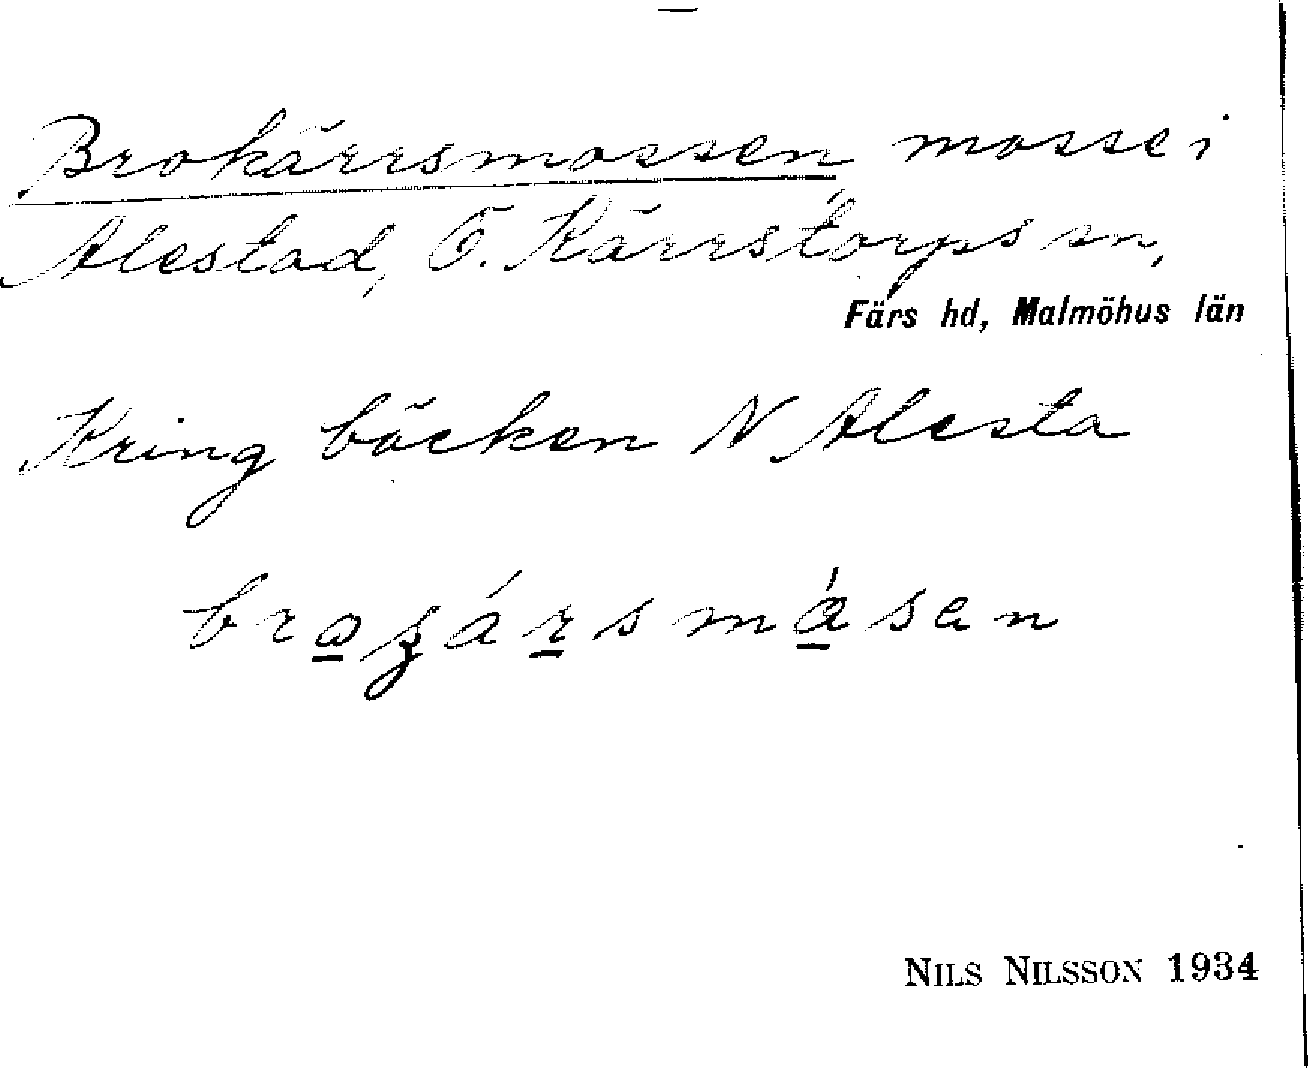 Brokärrsmossen mosse i
Alestad, Ö. Kärrstorps sn,
Färs hd, Malmöhus län
Kring bäcken N Alesta
NILS NILSSON 1934